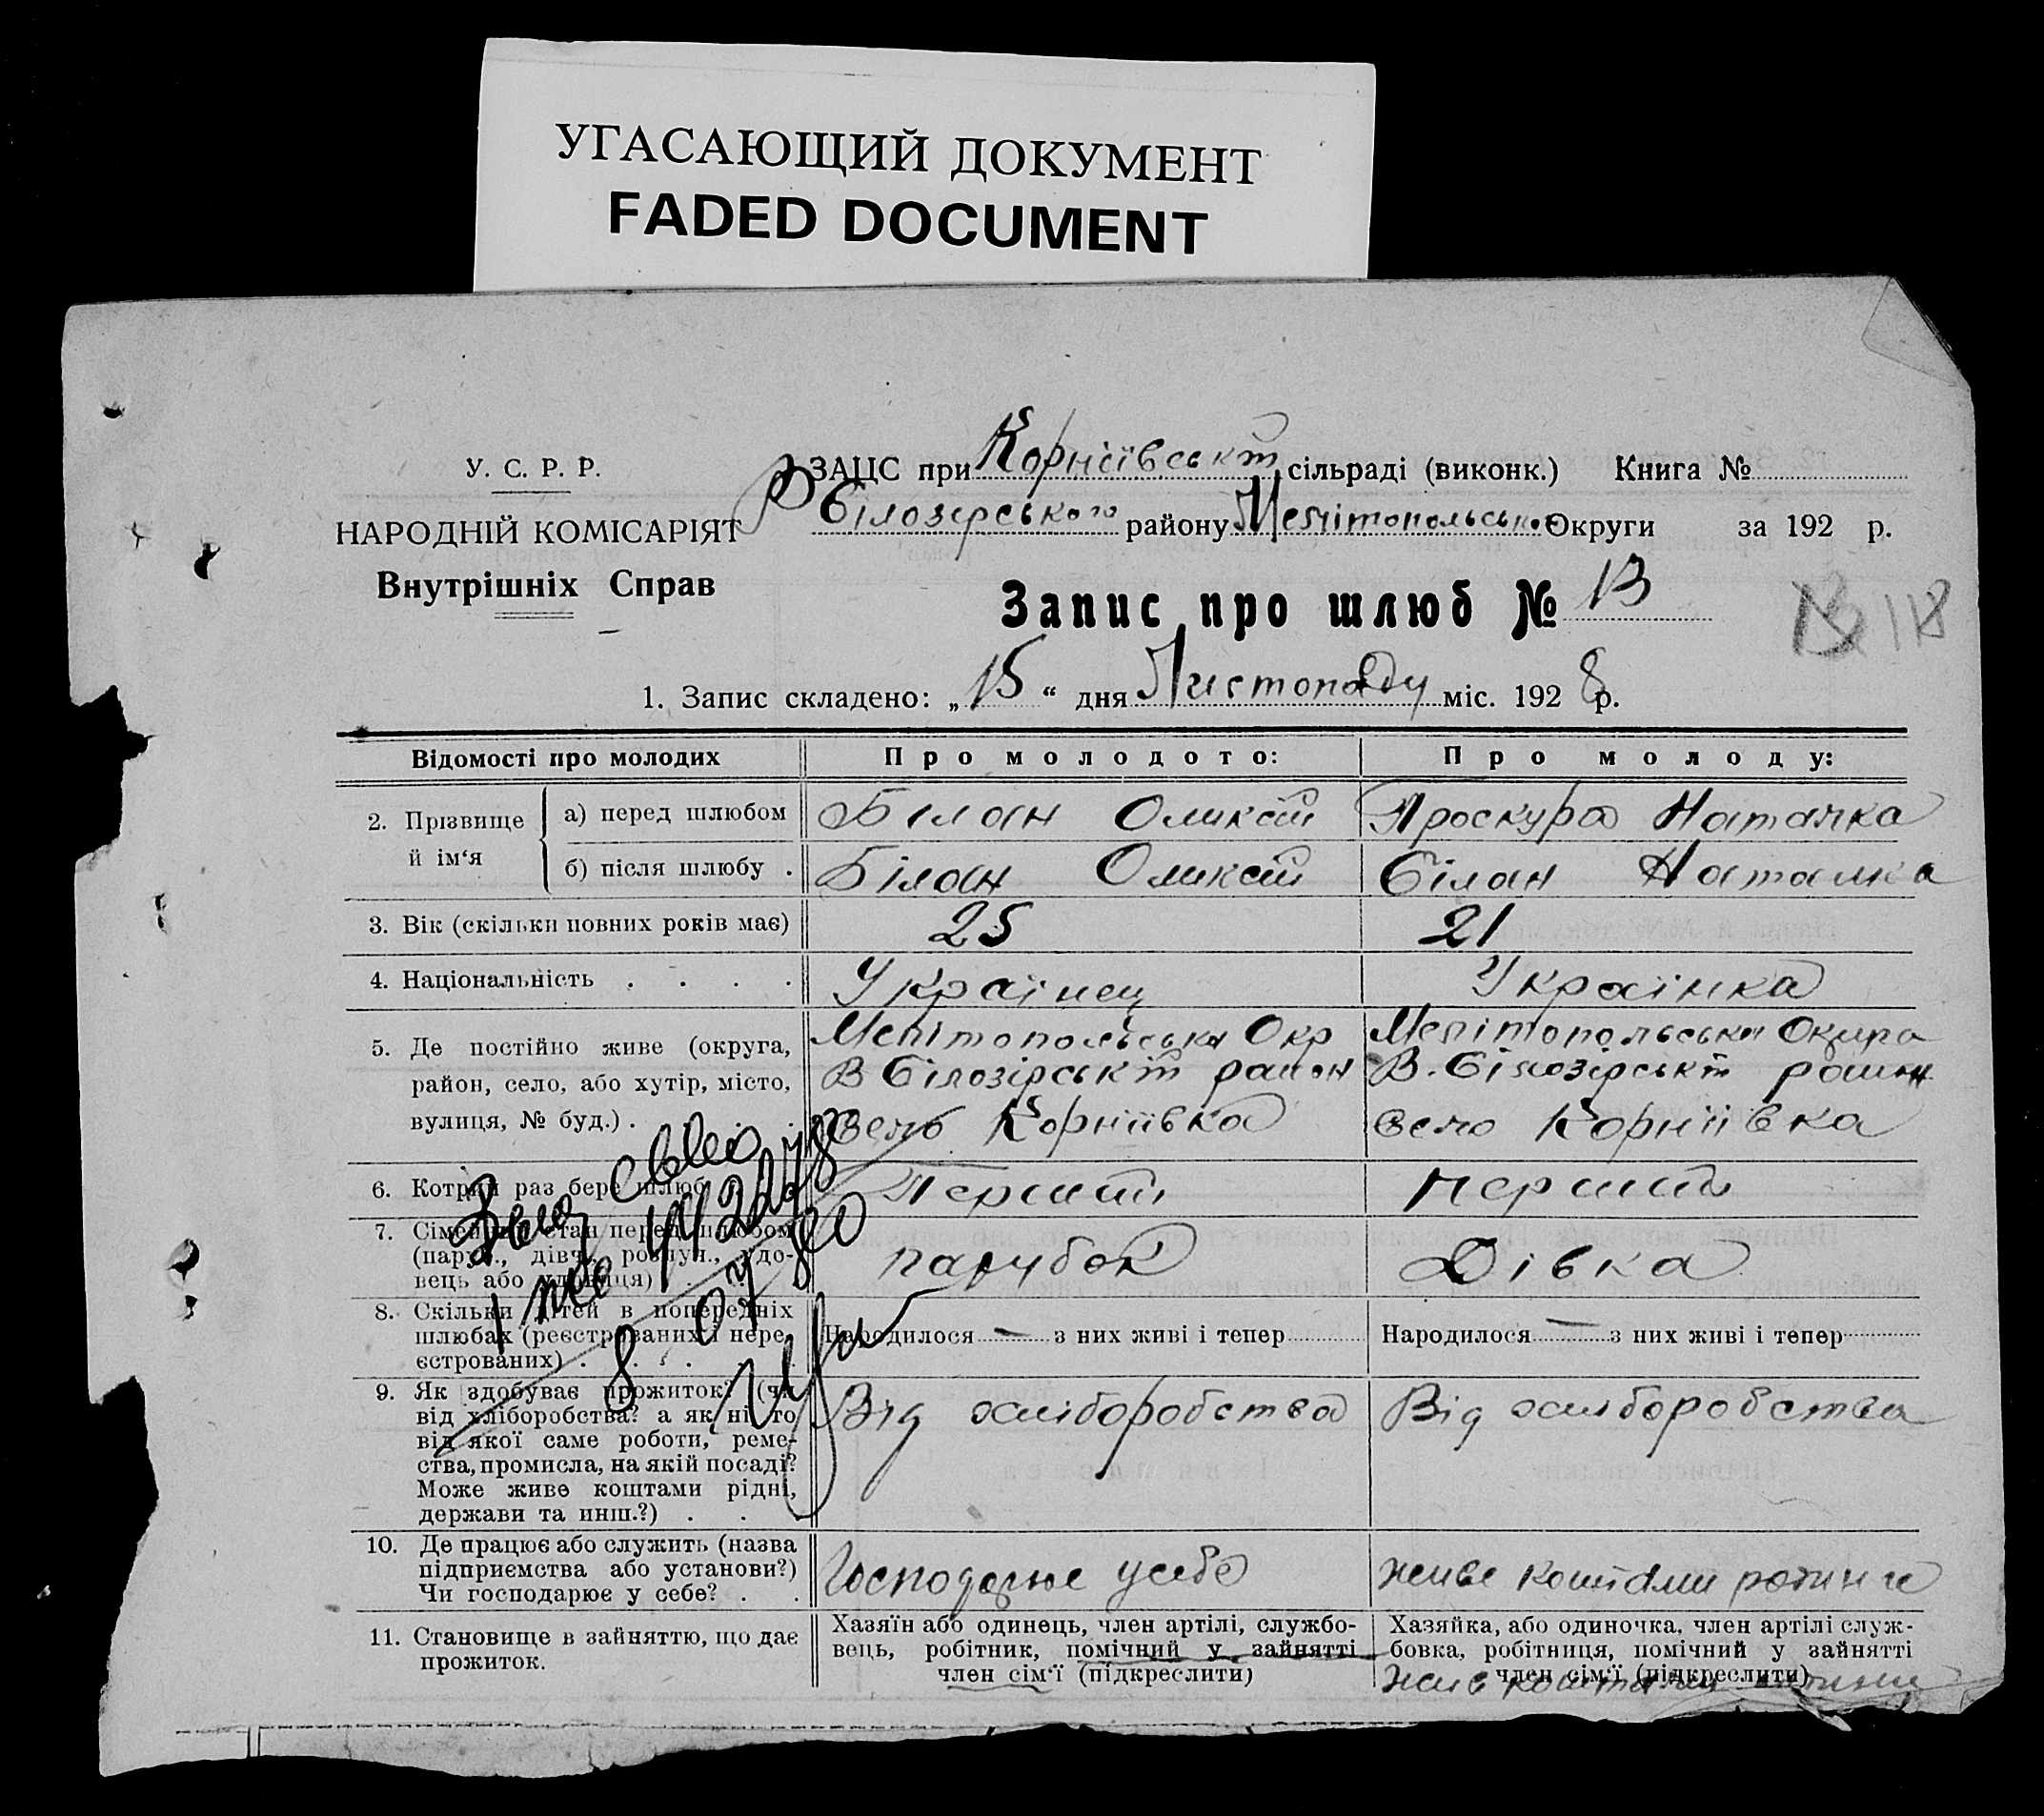 УГАСАЮЩИЙ ДОКУМЕНТ
FADED DOCUMENT
У. С. Р. Р.
НАРОДНІЙ КОМІСАРІЯТ
Внутрішніх Справ
ЗАЦС при Корніївській сільраді (виконк.) Книга №
В Білозірського району Мелітопольської Округи за 192 р.
Запис про шлюб № 13
1. Запис складено: „15“ дня Листопаду міс. 1928 р.
Відомості про молодих
Про молодого:
Про молоду:
2. Прізвище й ім‘я
а) перед шлюбом
Білан Оликсій
Проскура Наталка
б) після шлюбу .
Білан Оликсій
Білан Наталка
3. Вік (скільки повних років має)
25
21
4. Національність . . . .
Українец
Українка
5. Де постійно живе (округа,
район, село, або хутір, місто,
вулиця, № буд.) . . .
Мелітопольська Окр
В Білозірській район
село Корніївка
Мелітопольська Округа
В. Білозірській район
село Корніївка
6. Котрий раз бере шлюб
Перший
Перший
7. Сімейний стан перед шлюбом
(паруб., дівч., розлуч., удо-
вець або удовиця)
парубок
Дівка
8. Скільки дітей в попередніх
шлюбах (реєстрованих і нере-
єстрованих) . . .
Народилося — з них живі і тепер
Народилося — з них живі і тепер
9. Як здобуває прожиток? (чи
від хліборобства? а як ні, то
від якої саме роботи, реме-
ства, промисла, на якій посаді?
Може живе коштами рідні,
держави та инш.?) . .
Від хліборобства
Від хліборобства
10. Де працює або служить (назва
підприємства або установи?)
Чи господарює у себе? . .
Господарює у себе
живе коштами родини
11. Становище в зайняттю, що дає
прожиток.
Хазяїн або одинець, член артілі, службо-
вець, робітник, помічний у зайнятті
член сім‘ї (підкреслити)
Хазяйка, або одиночка, член артілі служ-
бовка, робітниця, помічний у зайнятті
член сім‘ї (підкреслити)